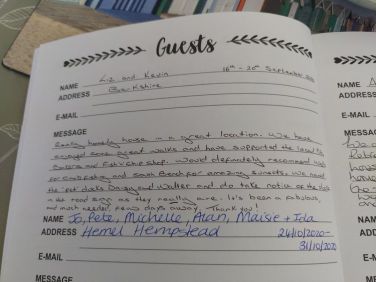 Guests
NAME Liz and Kevin 16th - 20th September
ADDRESS Berkshire
E-MAIL
MESSAGE
Really homely house in a great location. We have
enjoyed some great walks and have supported the local
and fish + chip shop. Would definately recommend
for and South Beach for amazing sunsets. We
the pet ducks and Walter and do take notice of the
in the road sign as they really are. It's been a fabulous,
and much needed few days away. Thank you!
NAME Jo, Pete, Michelle, Alan, Maisie + Isla
ADDRESS Hemel Hempstead 24/10/2020-
31/10/2020
E-MAIL
MESSAGE
NAME
ADDRESS
E-MAIL
MESSAGE
NAME
ADDRE
E-MAIL
MESSA